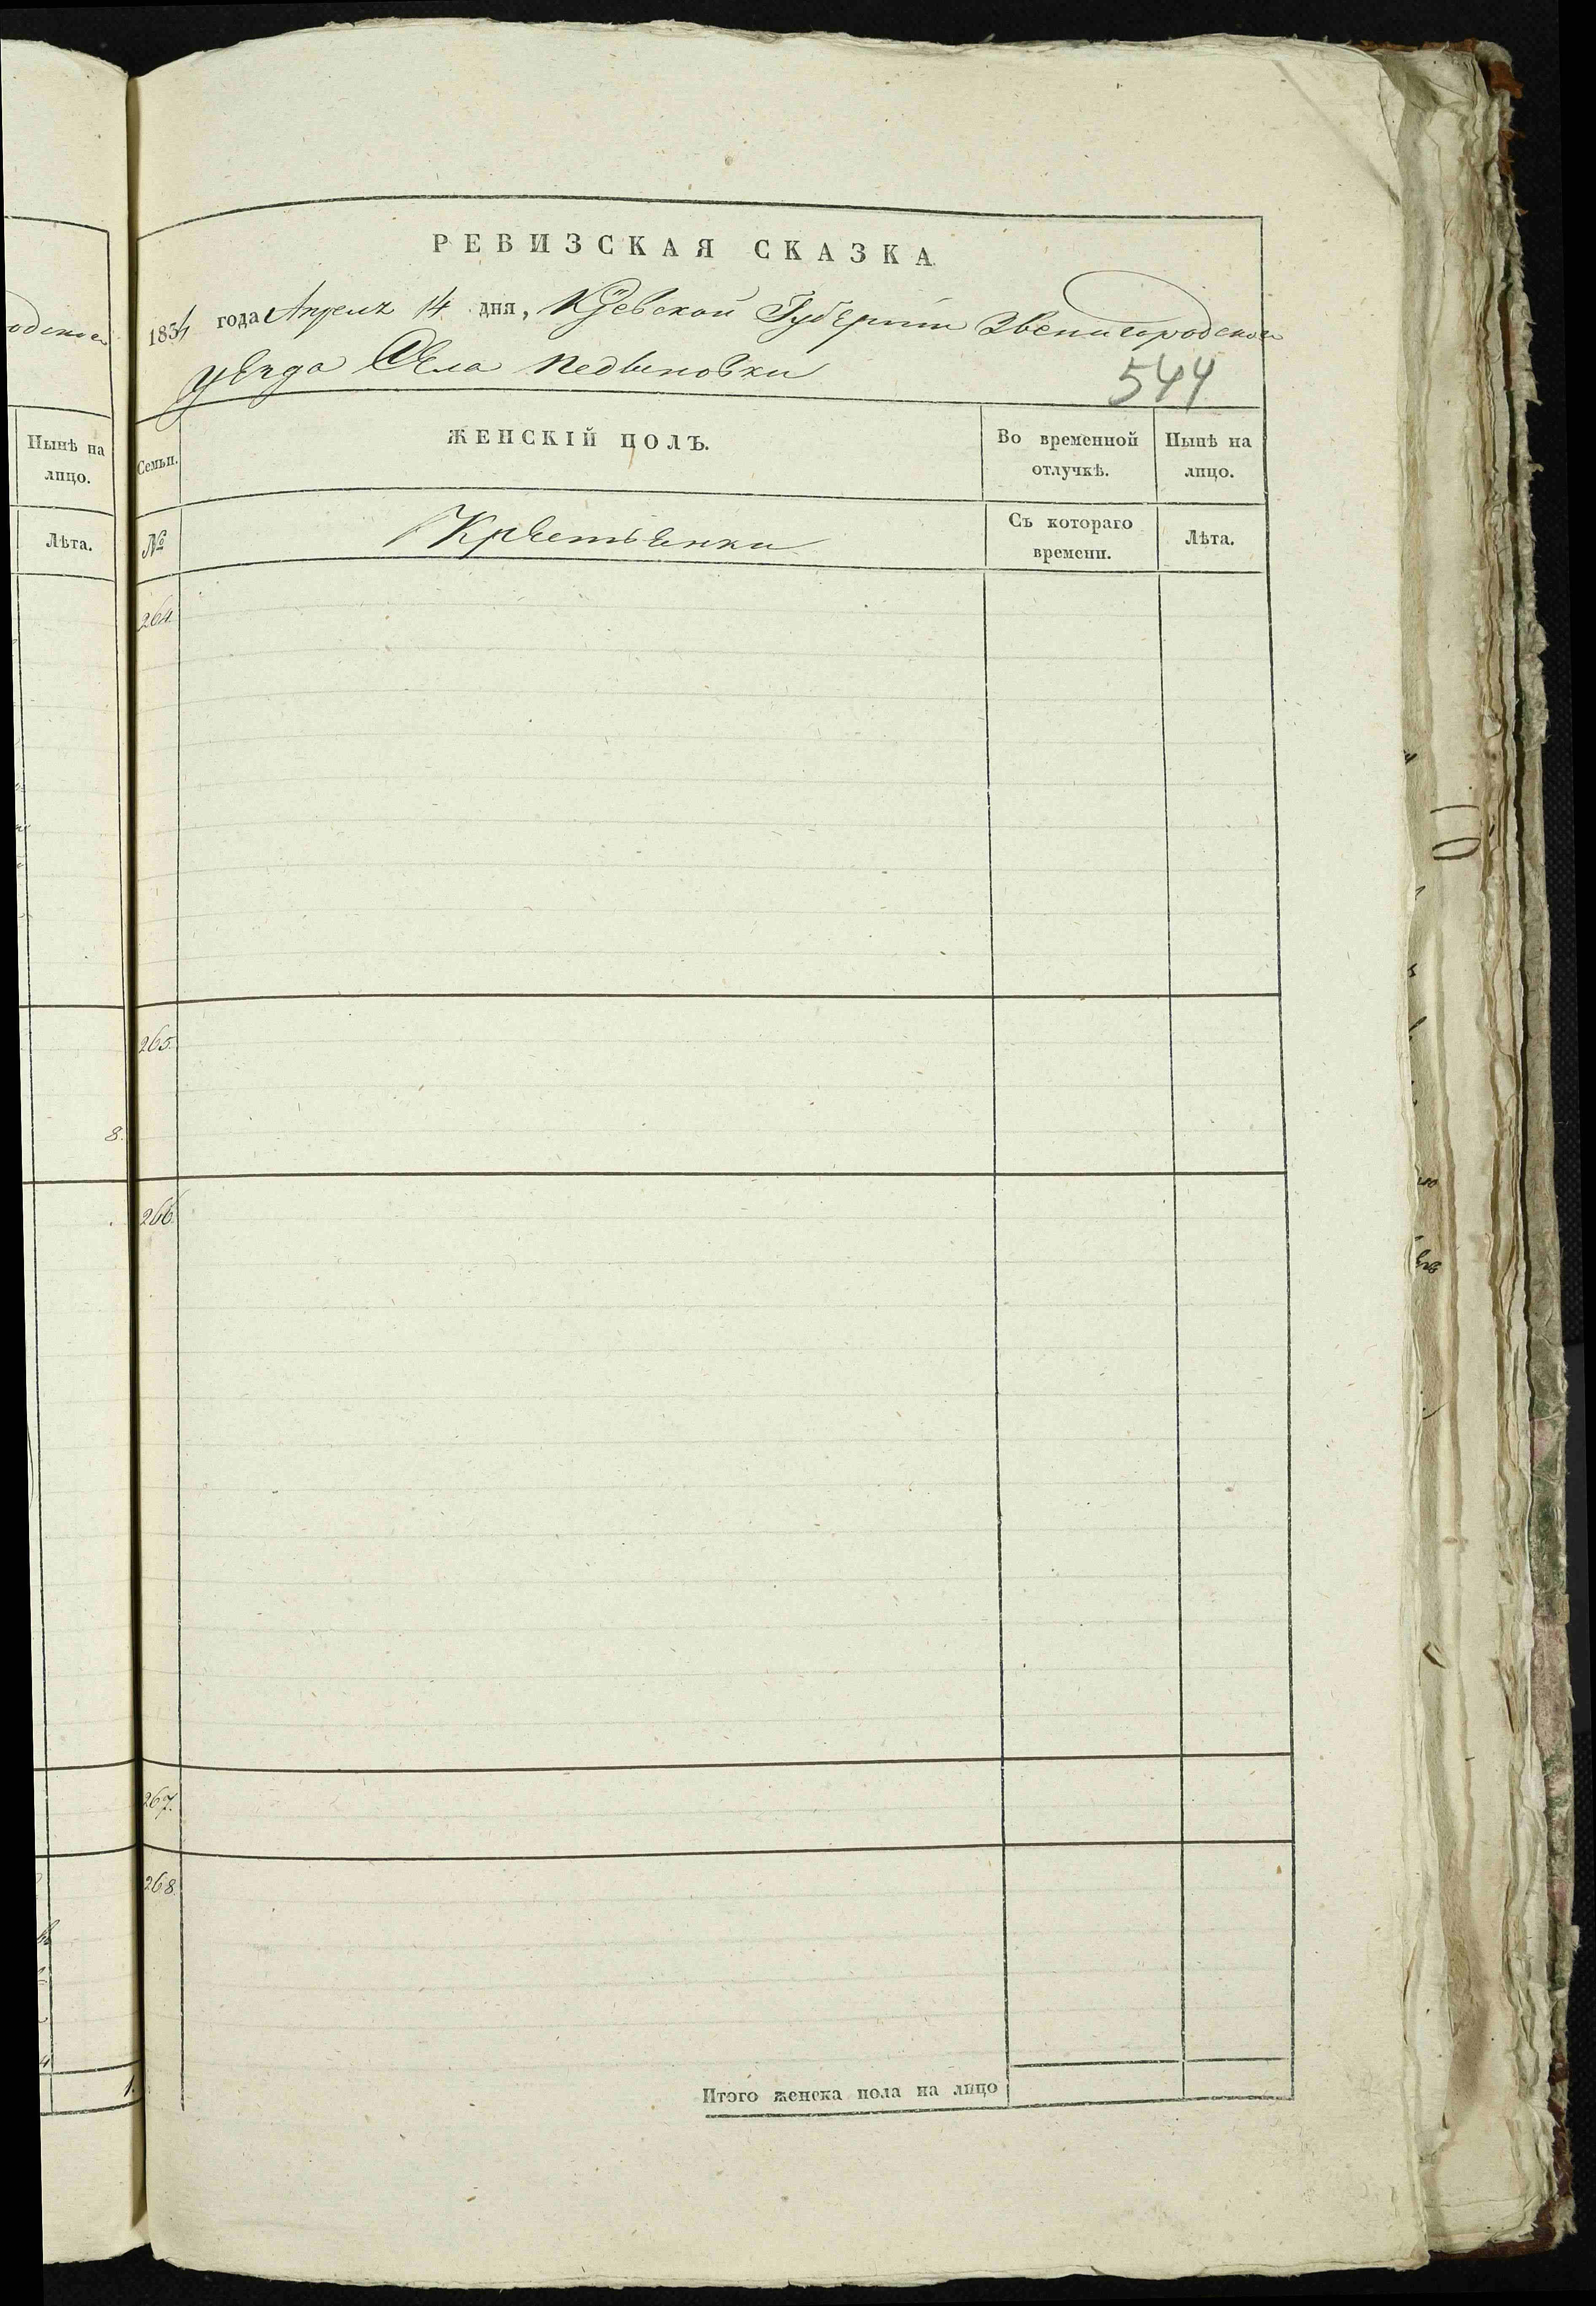 РЕВИЗСКАЯ СКАЗКА
1834 года Апреля 14 дня, Кіевской Губерніи Звенигородскаго
уезда Села Педыновки
544
Семьи.
ЖЕНСКІЙ ПОЛЪ.
Во временной отлучкѣ.
Нынѣ на лицо.
№
Крестьянки
Съ котораго времени.
Лѣта.
264.
265.
266.
267.
268.
Итого женска пола на лицо
Нынѣ на
лицо.
Лѣта.
8.
1.